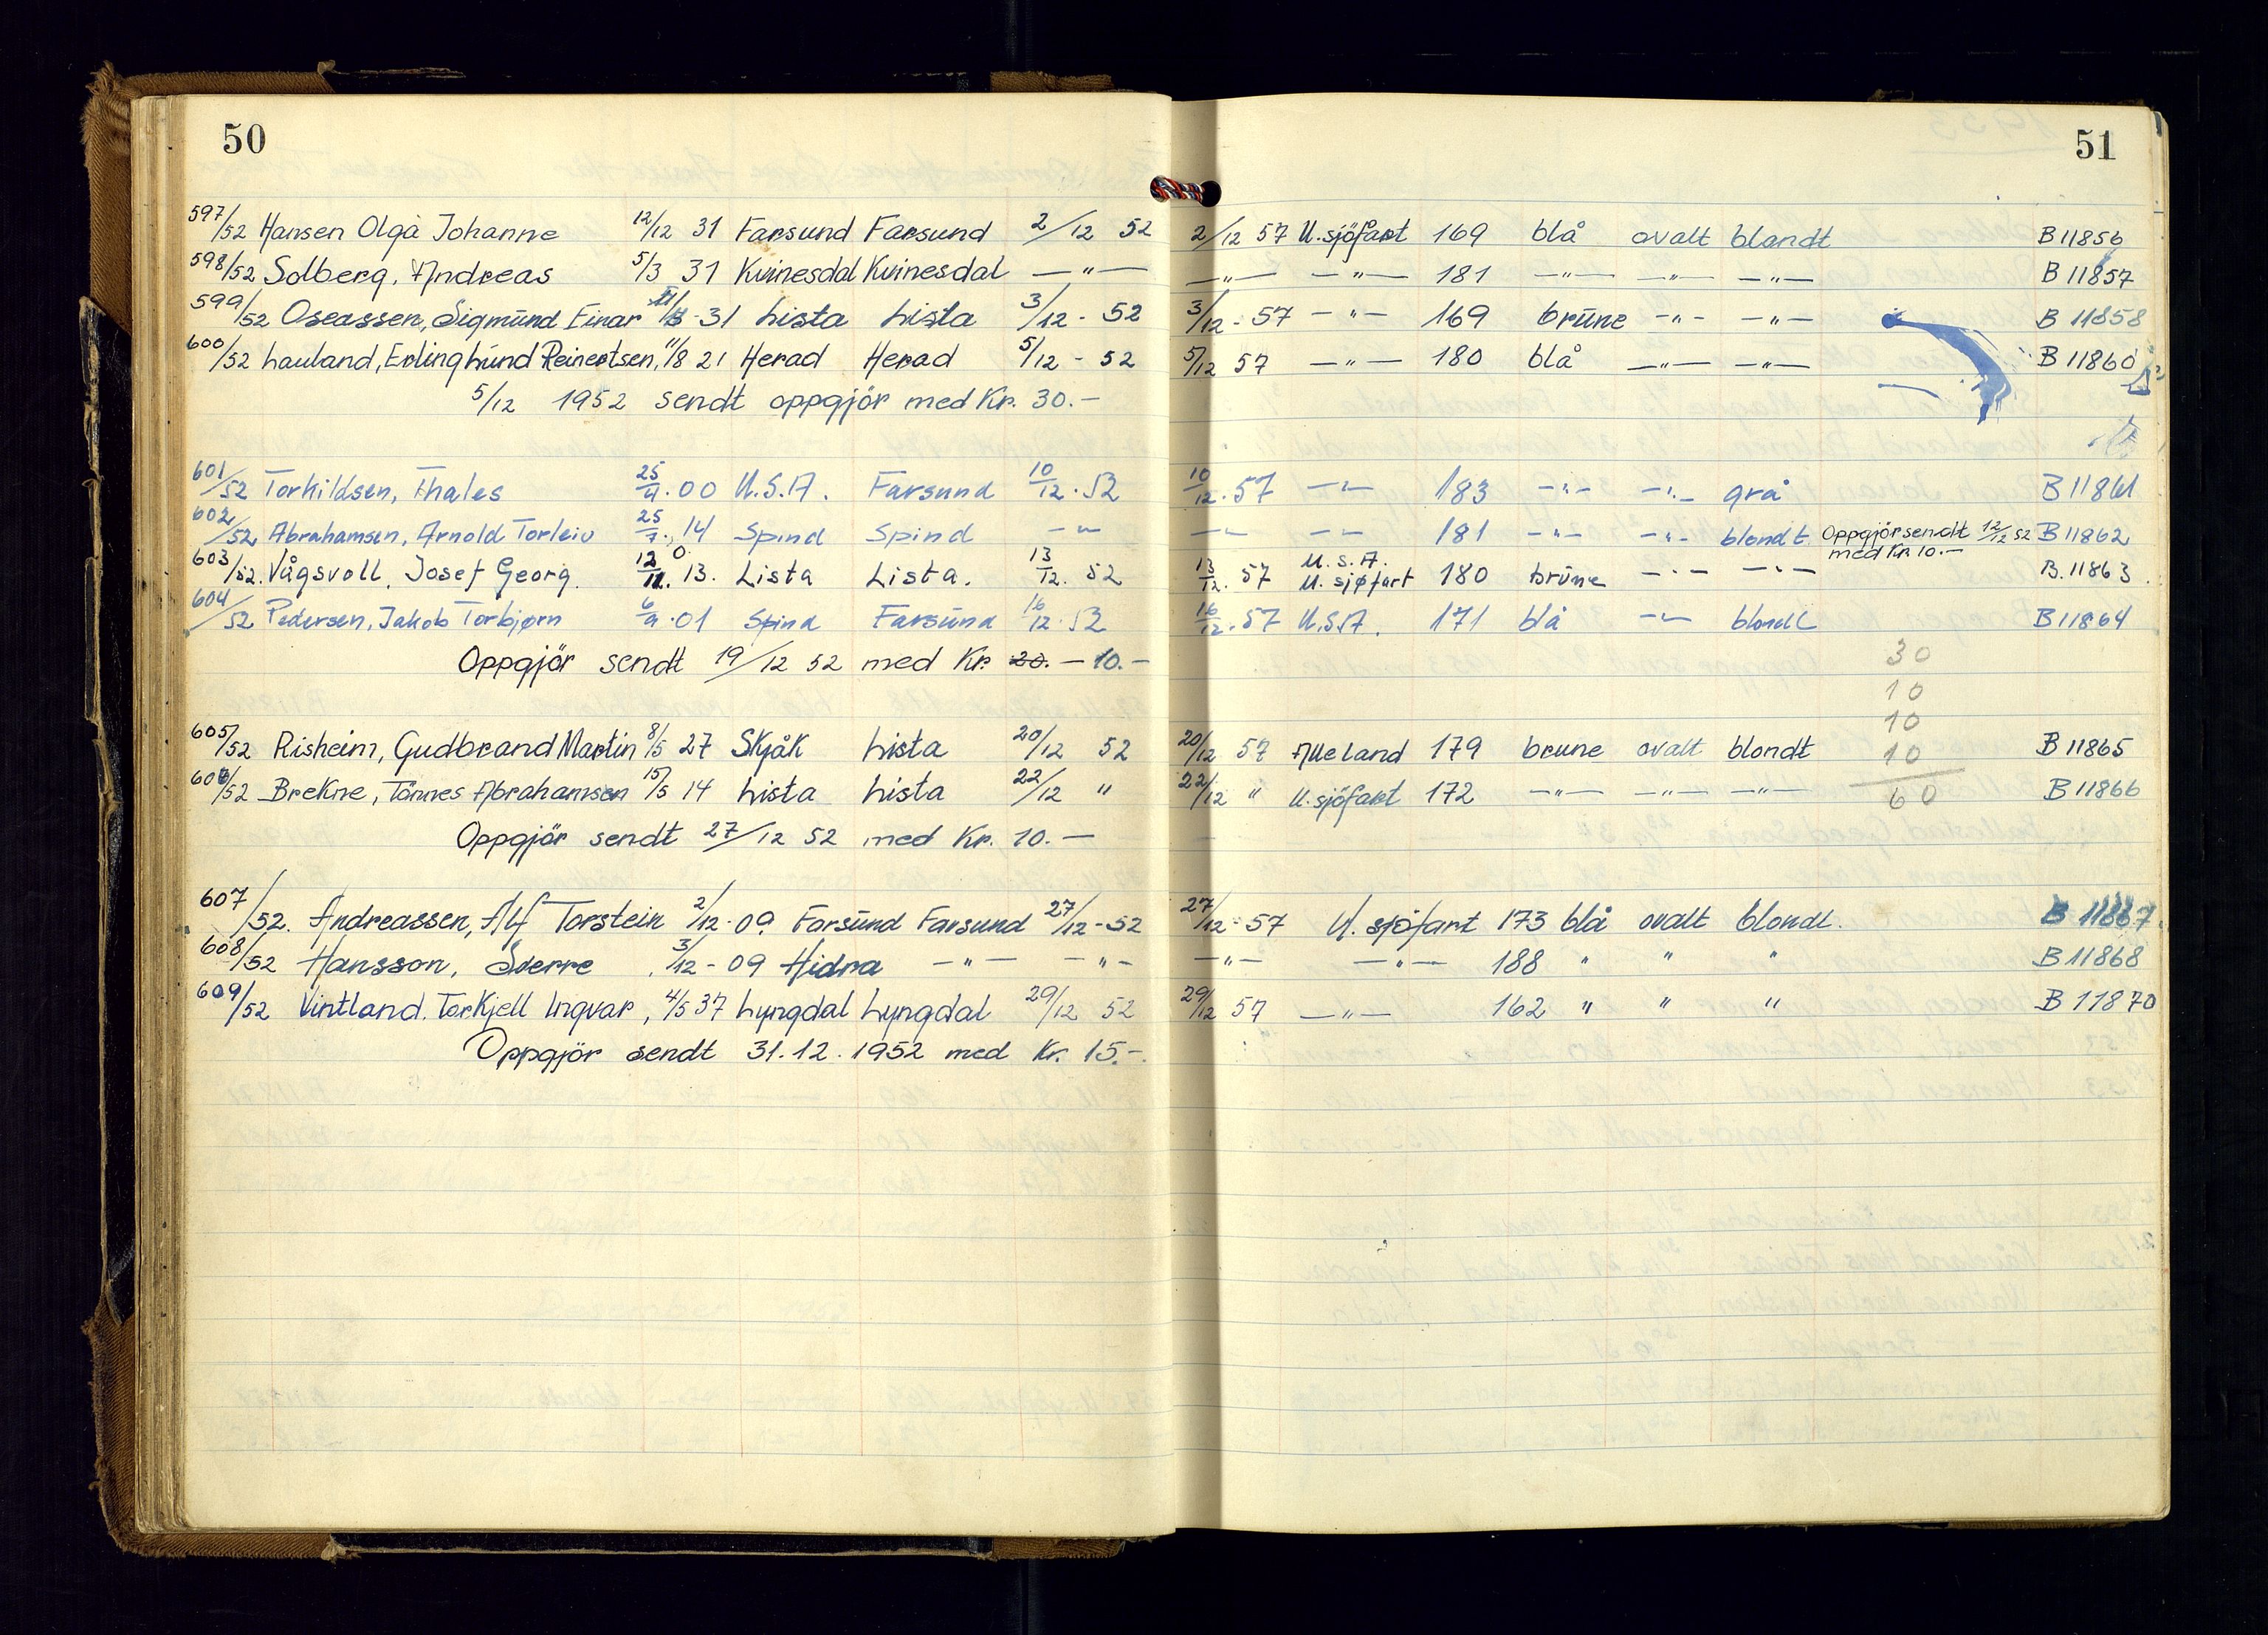 50
51
597/52 Hansen Olga Johanne 12/12 31 Farsund Farsund 2/12 52 2/12 57 U.sjöfart 169 blå ovalt blandt B 11856
598/52 Solberg, Andreas 5/3 31 Kvinesdal Kvinesdal —"— —"— —"— 181 —"— —"— —"— B 11857
599/52 Oseassen, Sigmund Einar - 31 Lista Lista 3/12 - 52 3/12 - 57 —"— 169 brune -"- —"— B 11858
600/52 Lauland, Erling Lund Reinertsen, 11/8 21 Herad Herad 5/12 - 52 5/12 57 —"— 180 blå —"— —"— B 11860
5/12 1952 sendt oppgjör med Kr. 30.-
601/52 Torkildsen, Thales 25/9.00 U.S.A. Farsund 10/12.52 10/12.57 -"- 183 -"- -"- grå B 11861
602/52 Abrahamsen, Arnold Torleiv 25/7. 14 Spind Spind -"- -"- -"- 181 -"- -"- blondt Oppgjör sendt 12/12 52 B 11862
med Kr 10.—
603/52. Vågsvoll, Josef Georg. 12/11. 13. Lista Lista. 13/12. 52 13/12. 57 U.S.A. U. sjøfart 180 brune -"- -"- B. 11863.
604/52 Pedersen, Jakob Torbjørn 6/9.01 Spind Farsund 16/12.52 16/12.57 U.S.A. 171 blå -"- blondt B 11864
Oppgjör sendt 19/12 52 med Kr. 20.— 10.—
30
10
10
605/52 Risheim, Gudbrand Martin 8/5 27 Skjåk Lista 20/12 52 20/12 57 Alle land 179 brune ovalt blondt 10 B 11865
606/52 Brekne, Tönnes Abrahamsen 15/5 14 Lista Lista 22/12 " 22/12 " U.sjöfart 172 —"— —"— —"— 60 B 11866
Oppgjör sendt 27/12 52 med Kr. 10.—
607/52. Andreassen, Alf Torstein 2/12-09. Farsund Farsund 27/12-52 27/12-57 U. sjöfart 173 blå ovalt blondt. B 11867.
608/52 Hansson, Sverre, 3/12-09 Hidra —"— —"— —"— —"— 188 " " " B 11868
609/52 Vintland. Torkjell Ingvar, 4/5 37 Lyngdal Lyngdal 29/12 52 29/12 57 —"— 162 " " " B 11870
Oppgjör sendt 31.12.1952 med Kr. 15.-